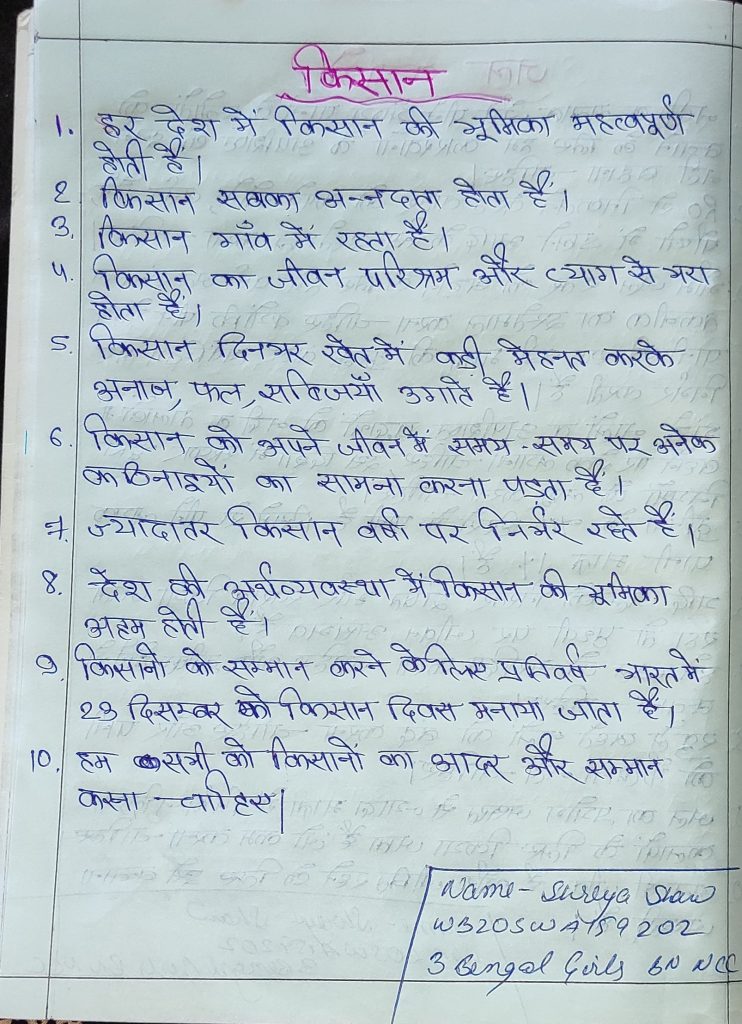 किसान
1. हर देश में किसान की भूमिका महत्वपूर्ण
होती हैं।
2 किसान सबका अन्नदाता होता हैं।
3. किसान गाँव में रहता हैं।
4. किसान का जीवन परिश्रम और त्याग से भरा
होता हैं।
5. किसान दिनभर खेत में कड़ी मेहनत करके
अनाज, फल, सब्जियाँ उगाते हैं।
6. किसान को अपने जीवन में समय-समय पर अनेक
कठिनाइयों का सामना करना पड़ता हैं।
7. ज्यादातर किसान वर्षा पर निर्भर रहते हैं।
8. देश की अर्थव्यवस्था में किसान की भूमिका
अहम होती हैं।
9 किसानों को सम्मान करने के लिए प्रतिवर्ष भारत में
23 दिसम्बर को किसान दिवस मनाया जाता हैं।
10. हम सभी को किसानों का आदर और सम्मान
करना चाहिए।
Name - Shreya Shaw
WB20SWA159202
3 Bengal Girls BN NCC